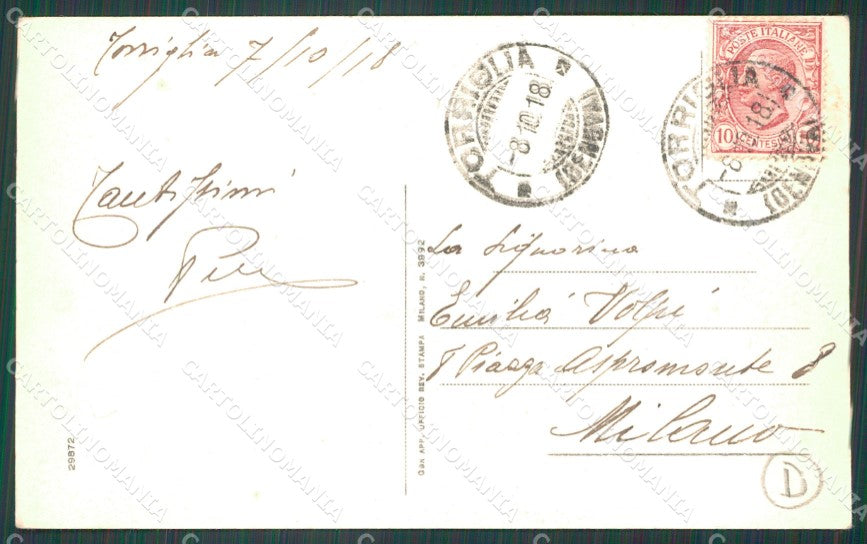 Torriglia 7/10/18
Tantissimi
TORRIGLIA
-8.10.18
POSTE ITALIANE
10 CENTESIMI
TORRIGLIA
La Signorina
Emilia Volpi
Piazza Aspromonte 8
Milano
D
29872
CON APP. UFFICIO REV. STAMPA MILANO, N. 3992
CARTOLINOMANIA